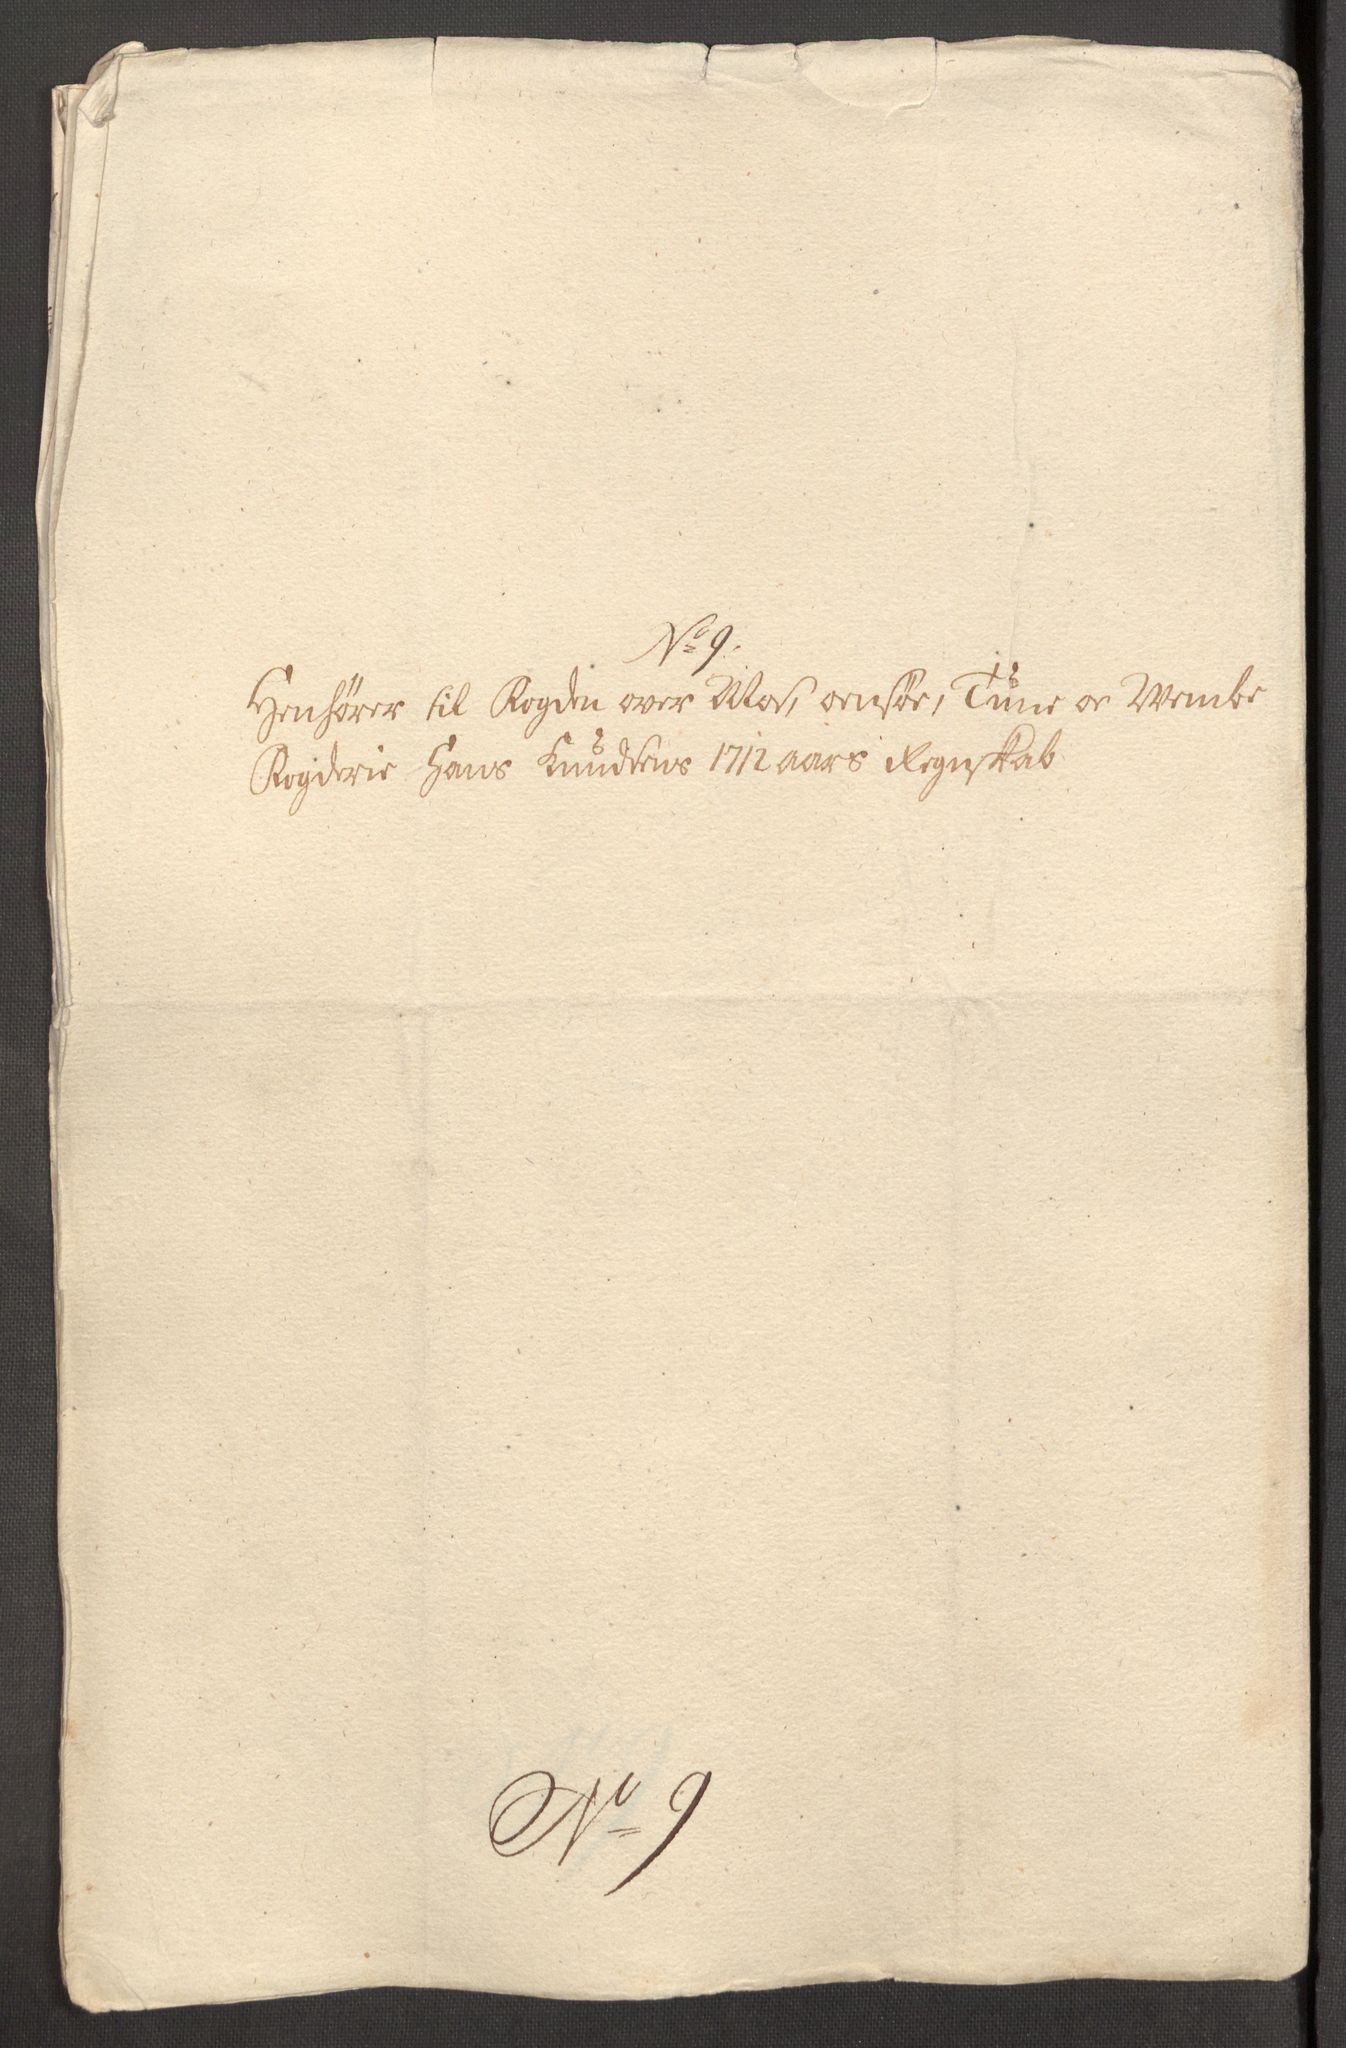 No 9.
Henhører til Fogden over Mos, Onsøe, Tune oc Wembe
Fogderie Hans Knudsens 1712 aars Regnskab
No 9